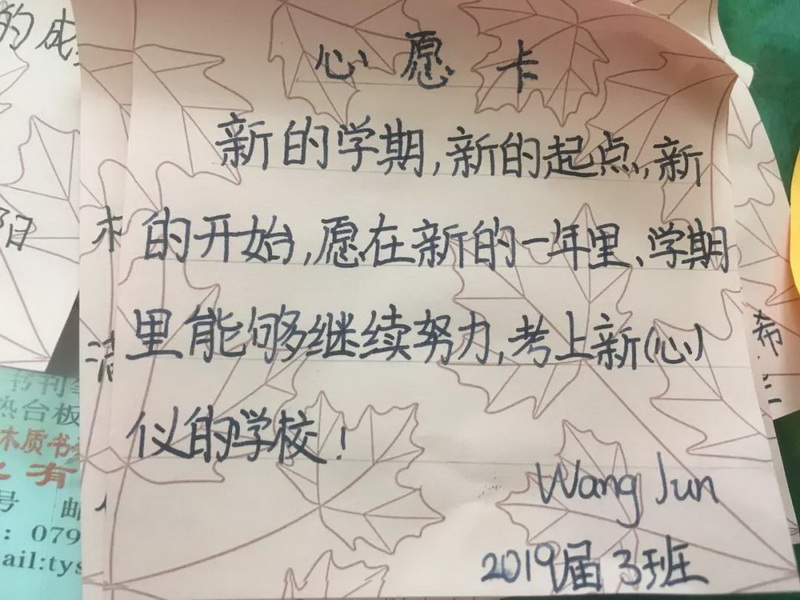 心愿卡
新的学期,新的起点,新
的开始,愿在新的一年里、学期
里能够继续努力,考上新(心)
仪的学校!
Wang Jun
2019届3班
的成
阳
木
希
书刊
热台板
木质书
有
号 邮
: 079
ail:tys